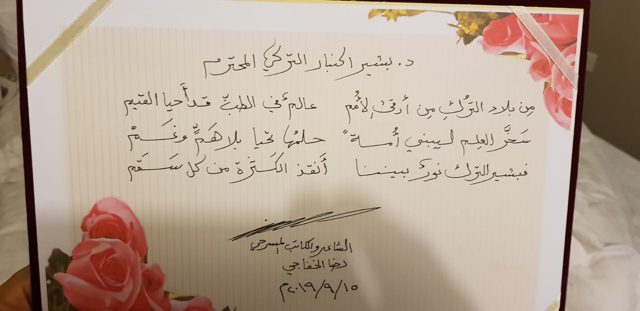 د. بشير الجنبار التركي المحترم
مِن بلاد التُركِ مِن أرقى الأمُم عالمٌ في الطبِّ قد أحيا القيم
سَخَّرَ العِلمَ ليبني أُمةً حلمُها تحيا بلا همٍّ وغَمْ
فبشيرُ التركِ نورٌ بيننا أنقذ الكَثرةَ من كل سَقَم
الشاعر والكاتب المسرحي
رضا الخفاجي
٢٠١٩/٩/١٥م